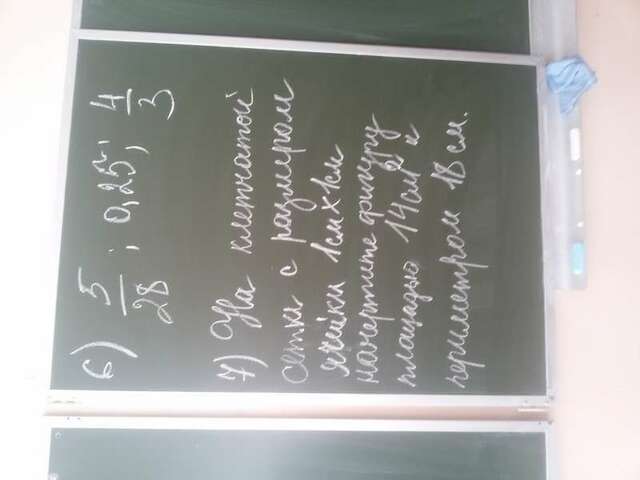 6) 5/28 ; 0,25 ; 4/3
7) На клетчатой
сетке с размером
ячейки 1см×1см
начертите фигуру
площадью 14см² и
периметром 18см.